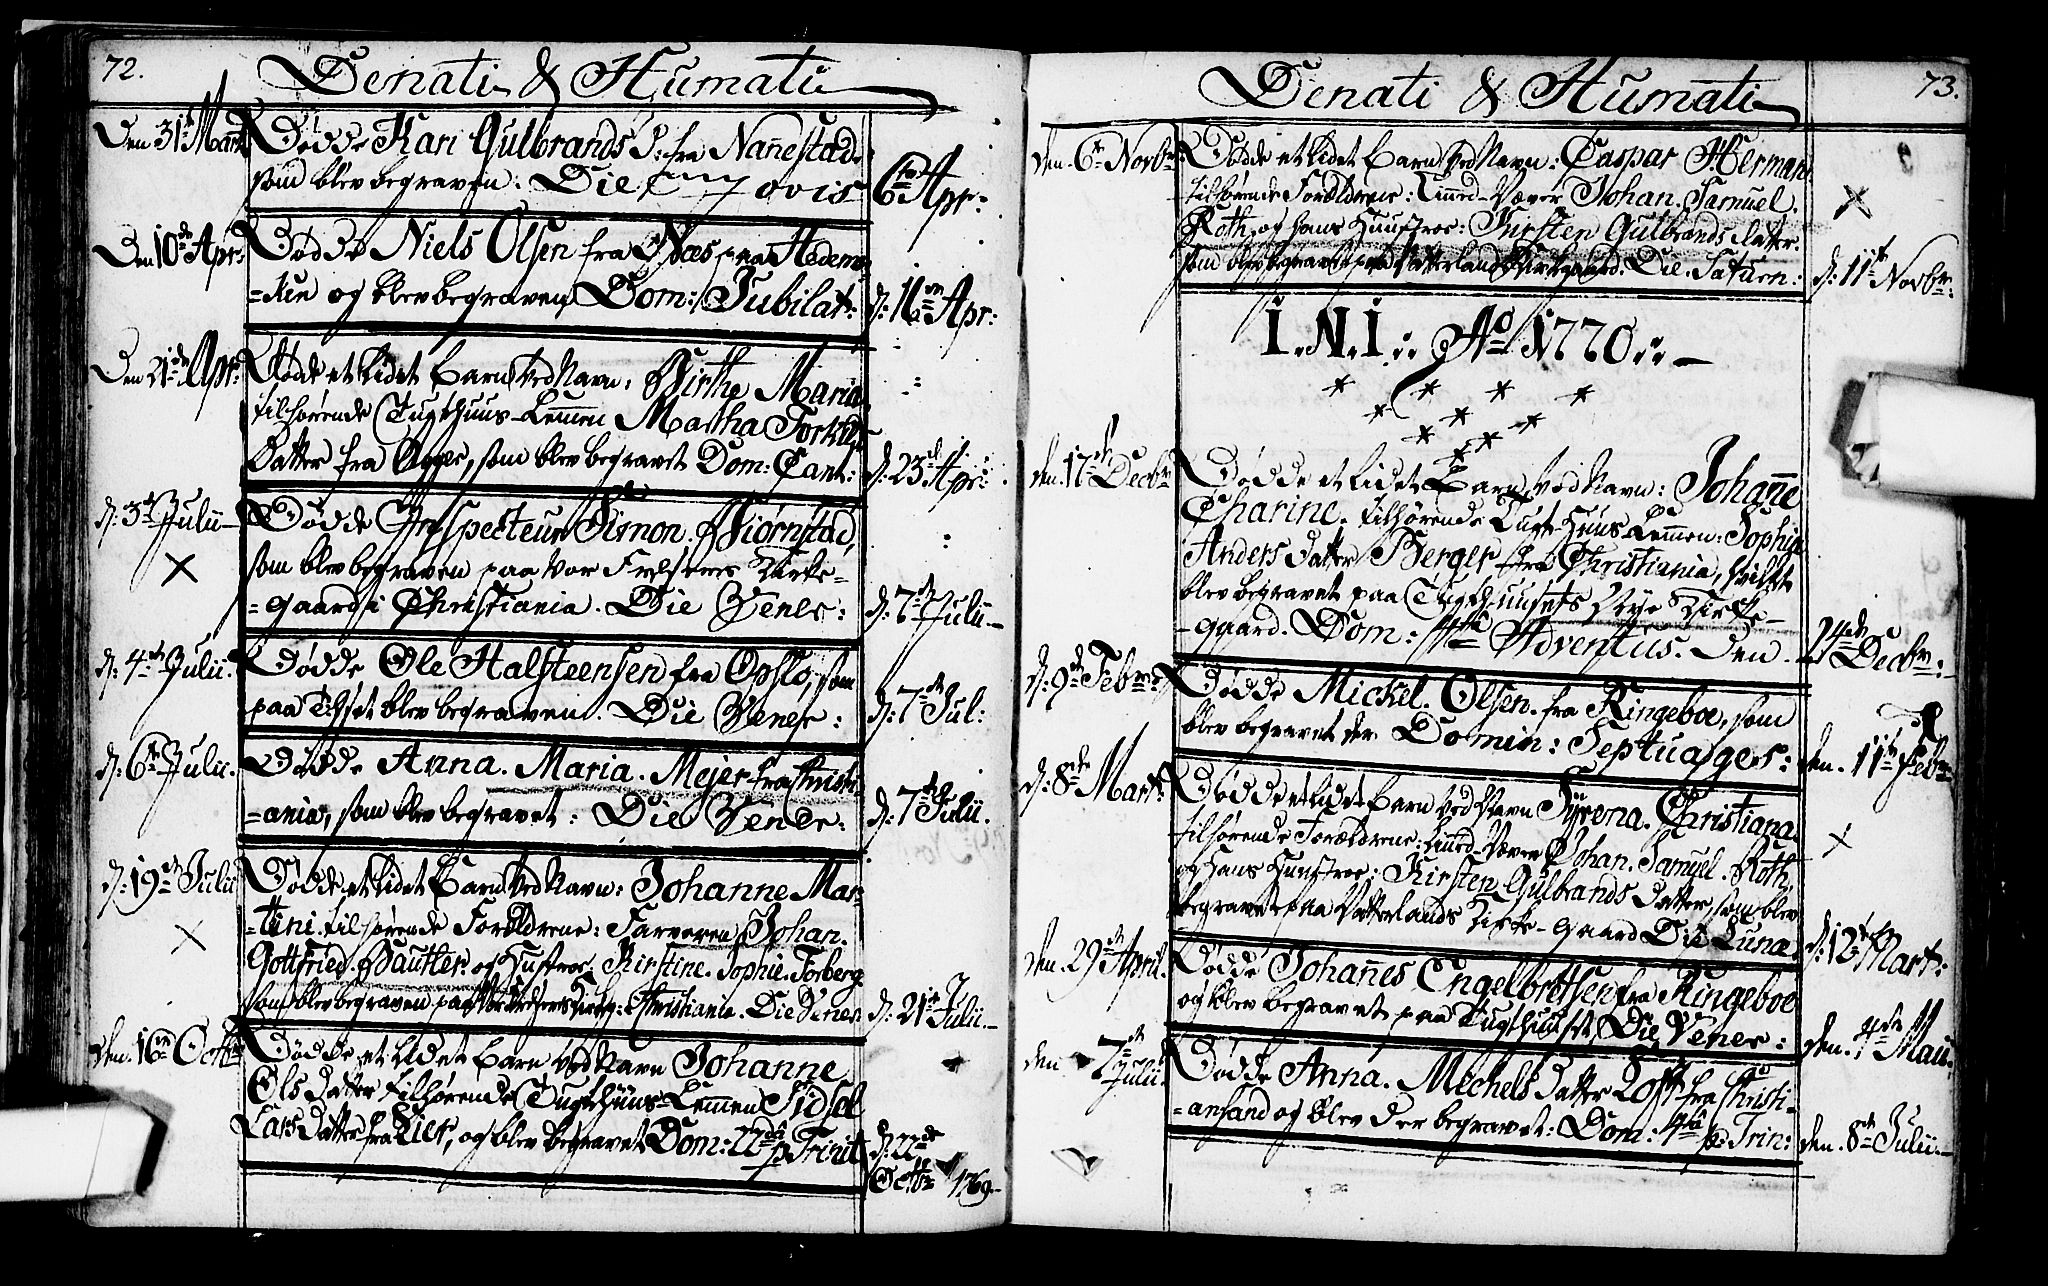 72.
Denati & Humati
Den 31te Marti
Dødde Kari Gulbrands D: fra Nannestad
som blev begraven: Die Jovis
6te Apr:
Den 10de Apr:
Dødde Niels Olsen fra Næs paa Hedem-
=ken og blev begraven Dom: Jubilat:
d: 16en Apr:
Den 21de Apr:
Dødde et lidet Barn ved Navn: Birthe Maria
tilhørende Tugthuus-Lemmen Martha Torkils
Datter fra Agger, som blev begravet Dom: Cant:
d: 23de Apr:
d: 3de Julii
Dødde Inspecteur Simon Biørnstad,
som blev begraven paa Vor Frelseres Kirke-
=gaard i Christiania. Die Vener:
d: 7de Julii
d: 4de Julii.
Dødde Ole Halsteensen fra Opslo, som
paa blev begraven. Die Vener:
d: 7de Jul:
d: 6te Julii.
Dødde Anna. Maria. Mejer fra Christi-
=ania, som blev begravet: Die Vener:
d: 7de Julii.
d: 19de Julii
Dødde et lidet Barn ved Navn: Johanne Mar-
=tini tilhørende Forældrene: Farveren Johan.
Gottfried. Bautler og Hustroe Kirstine. Sophie. Torberg
som blev begraven paa Vor Frelseres Kirkeg: Christiania. Die Vener
d: 21de Julii
den. 16en Octbr
Dødde et lidet Barn ved Navn Johanne
Ols Datter tilhørende Tugthuus-Lemmen Sidsel
Lars Datter fra Eier, og blev begravet Dom: 22da p. Trinit
d: 22de
Octbr 1769.
73.
Denati & Humati
den. 6te Novbr:
Dødde et lidet Barn ved Navn: Caspar Herman
tilhørende Forældrene: Linned-Væver Johan. Samuel.
Roth, og hans Huustroe: Kirsten Gulbrands datter.
som blev begravet paa Vatterlands Kirkegaard. Die. Saturn:
d: 11te Novbr:
I. N. I.: Ao 1770:
den. 17de Decbr
Dødde et lidet Barn ved Navn: Johanne
Charine. tilhørende Tugt-Huus Lemmen: Sophia
Anders Datter Berger fra Christiania, hvilket
blev begravet paa Tugthuusets Nye Kirke-
-gaard. Dom: 4ta Adventus. Den.
24de Decbr:
d: 9de Febr:
Dødde Mickel. Olsen. fra Ringeboe, som
blev begravet der Domin: Septuages:
den. 11te Febr
d: 8de Mart:
Dødde et lidet Barn ved Navn Syrena. Christiana.
tilhørende Forældrene: Linned-Væver Johan. Samuel. Roth,
og hans Huustroe: Kirsten Gulbrands Datter, som blev
begravet paa Vatterlands Kirke-gaard Die Lunæ.
d: 12te Mart:
den. 29de April.
Dødde Johannes Engelbretsen fra Ringeboe
og blev begravet paa Tugthuuset Die Vener:
den. 4de Maii.
den 7de Julii.
Dødde Anna. Mechels Datter Loft fra Christi-
=ansand og blev der begravet: Dom: 4ta p: Trin:
den. 8de Julii.